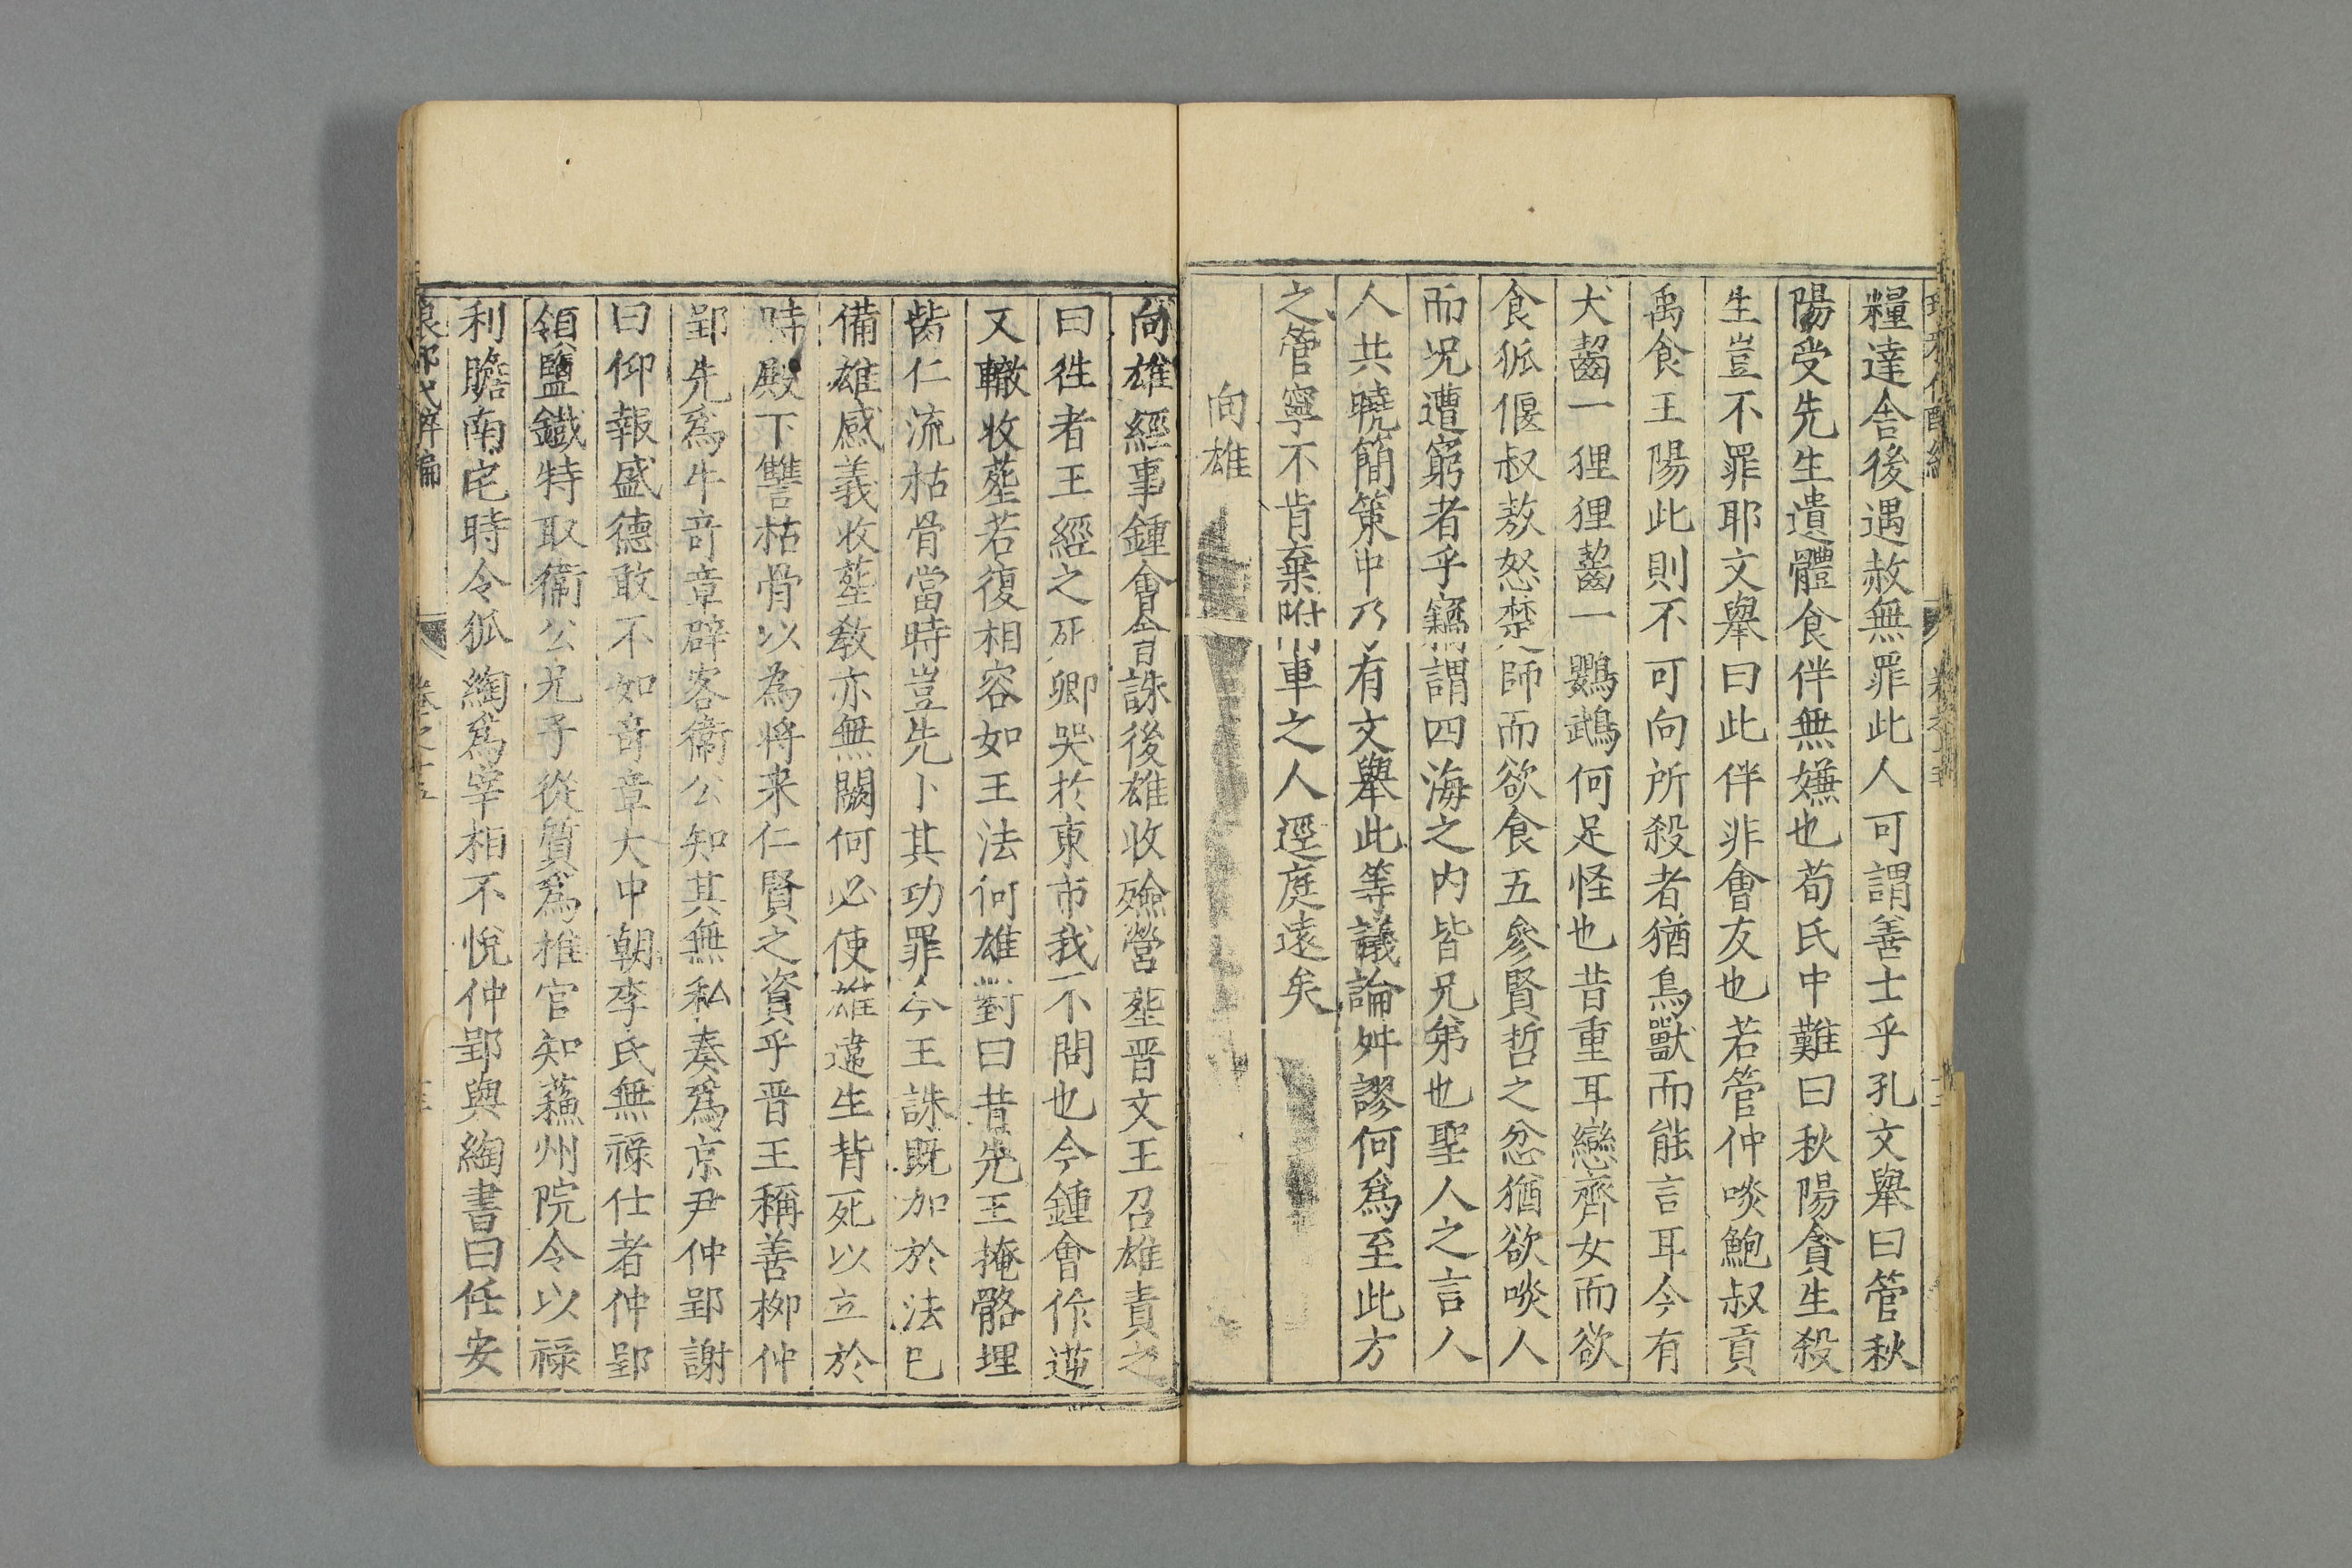 糧達舎後遇赦無罪此人可謂善士乎孔文舉曰管秋
陽受先生遺體食伴無嫌也荀氏中難曰秋陽貪生殺
生豈不罪耶文舉曰此伴非會友也若管仲啖鮑叔貢
禹食王陽此則不可向所殺者猶鳥獸而能言耳今有
犬齧一狸狸齧一鸚鵡何足怪也昔重耳戀齊女而欲
食狐偃叔敖怒楚師而欲食五參賢哲之忿猶欲啖人
而況遭窮者乎竊謂四海之內皆兄弟也聖人之言人
人共曉簡策中乃有文舉此等議論舛謬何爲至此方
之管寧不肯棄附車之人逕庭遠矣
向雄
向雄經事鍾會會誅後雄收殮營塟晋文王召雄責之
曰徃者王經之死卿哭於東市我不問也今鍾會作逆
又輙收塟若復相容如王法何雄對曰昔先王掩骼埋
胔仁流枯骨當時豈先卜其功罪今王誅既加於法已
備雄感義收塟教亦無闕何必使雄違生背死以立於
時殿下讐枯骨以為將来仁賢之資乎晋王稱善柳仲
郢先爲牛竒章辟客衞公知其無私奏爲京尹仲郢謝
曰仰報盛德敢不如竒章大中朝李氏無祿仕者仲郢
領鹽鐵特取衞公兄子從質爲推官知蘓州院令以祿
利贍南宅時令狐綯爲宰相不悅仲郢與綯書曰任安